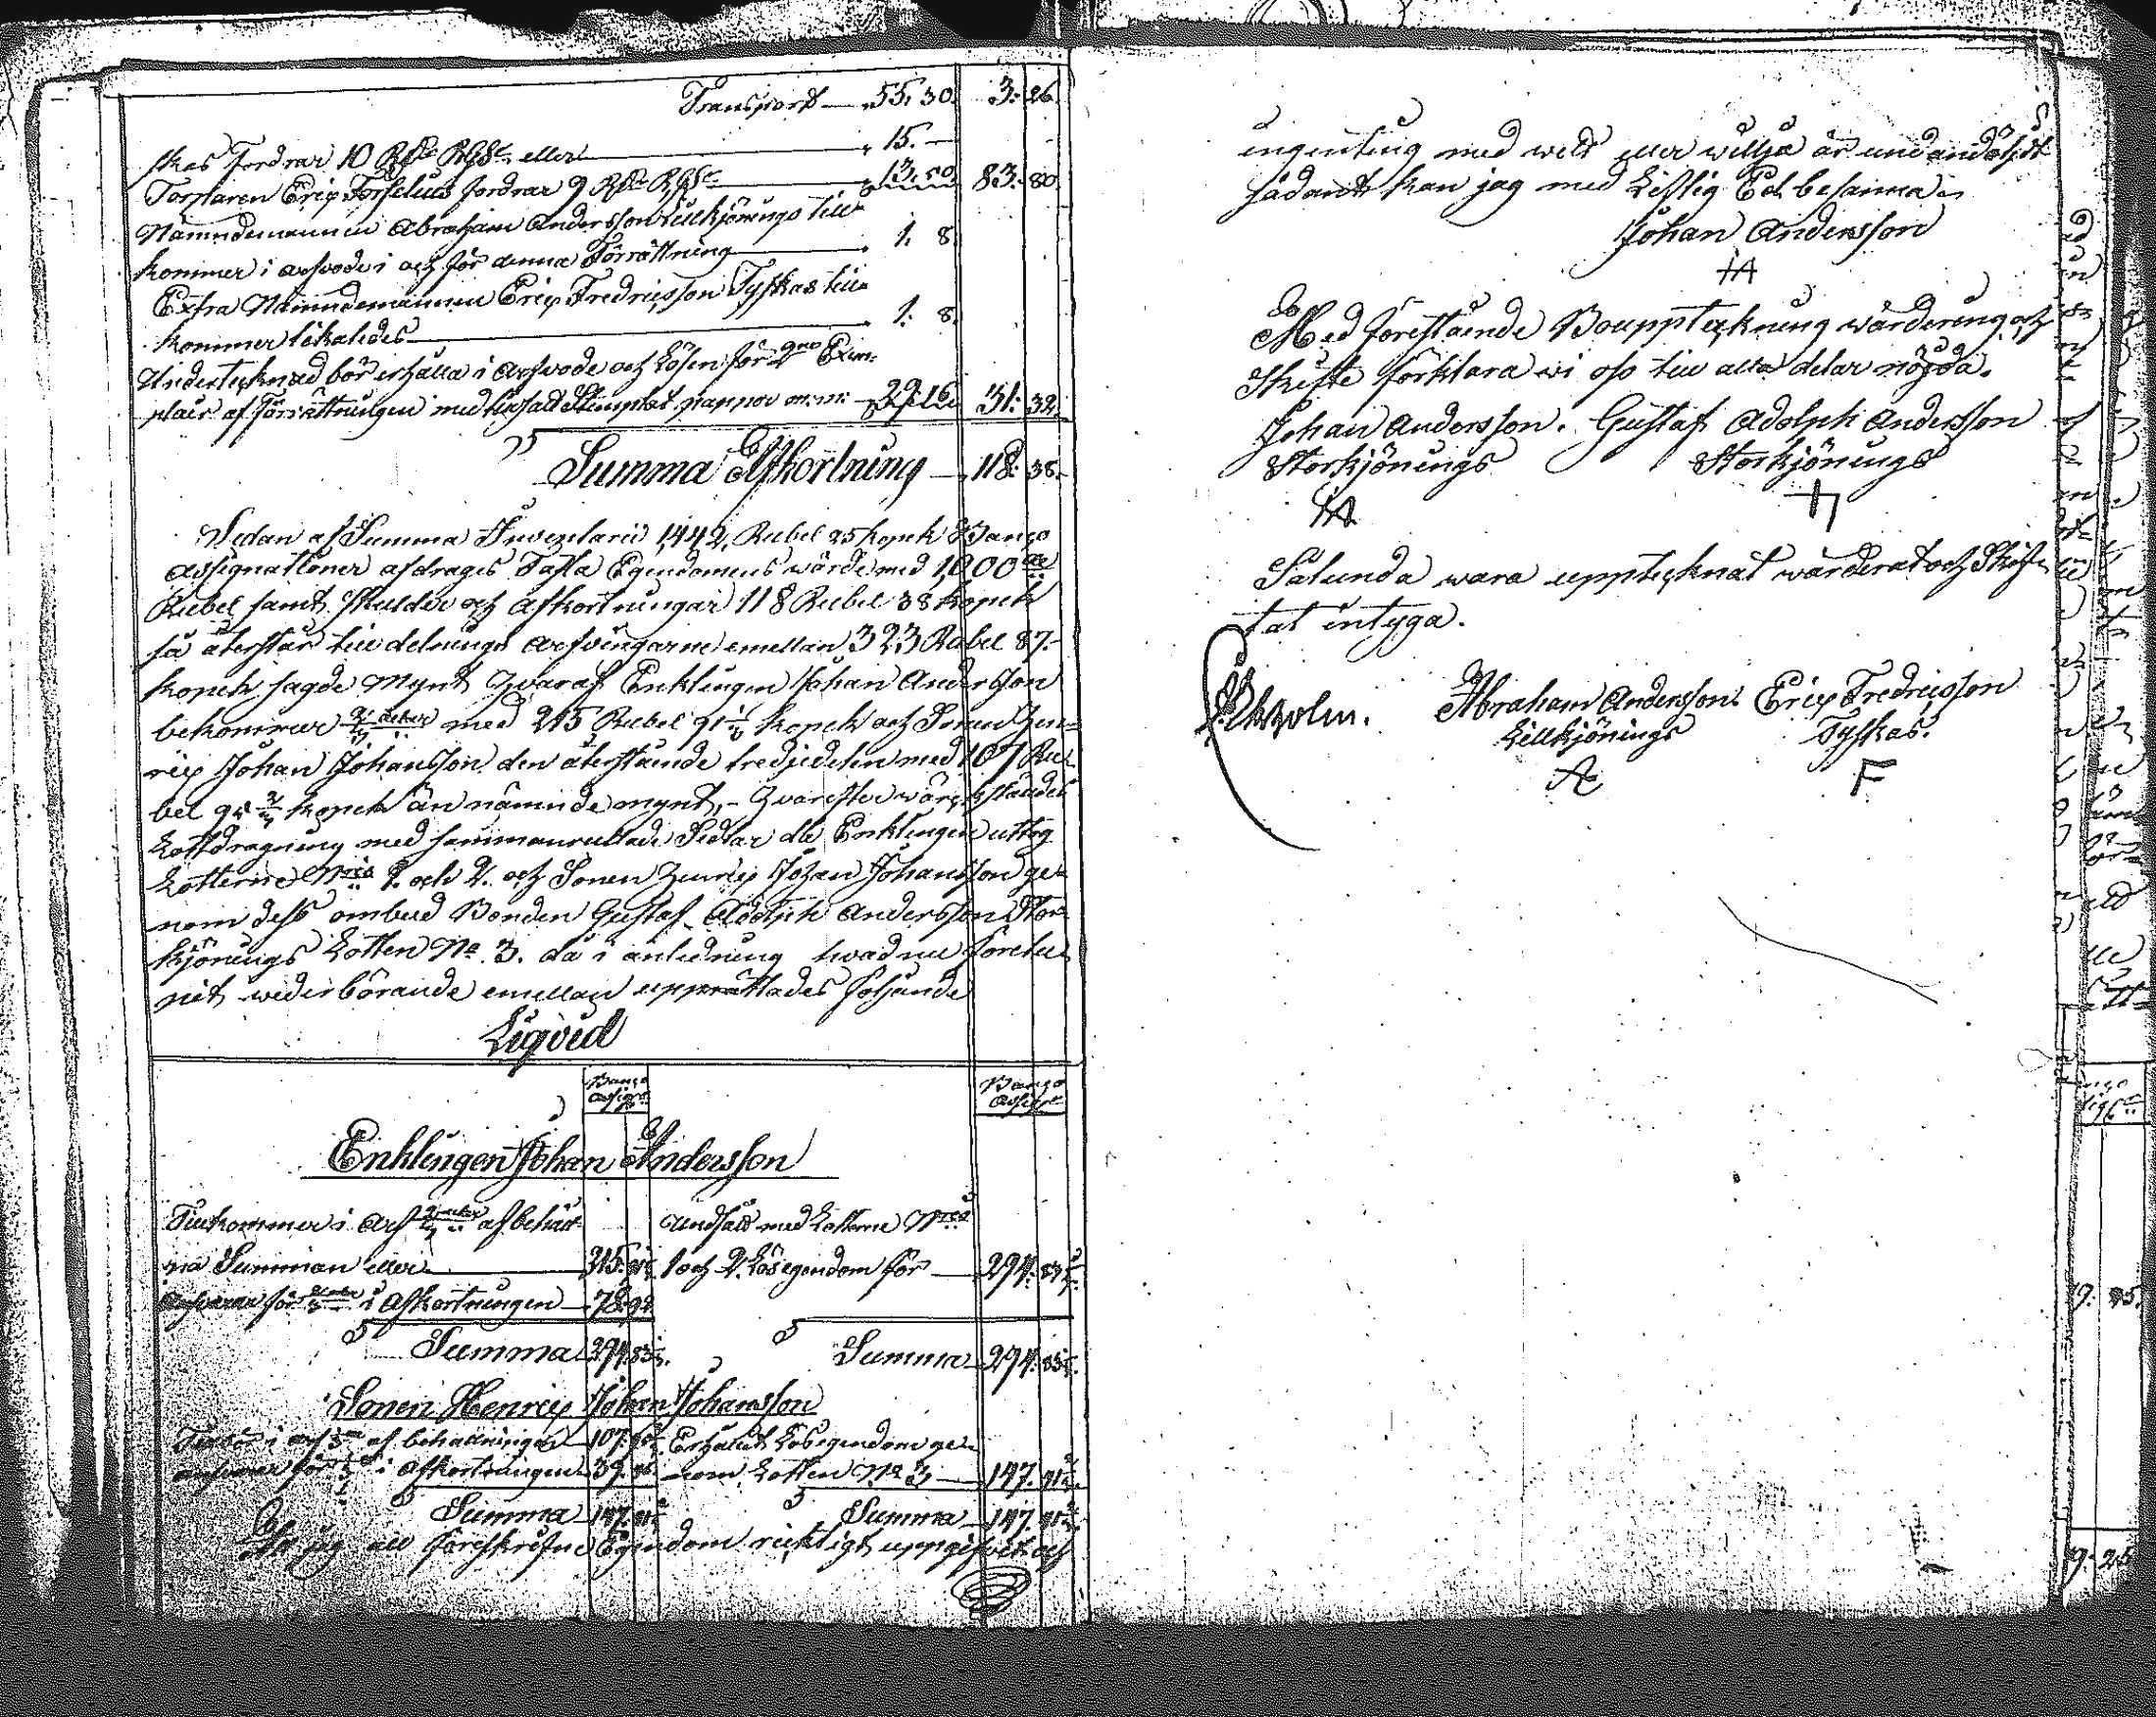 Transport — 55. 30. 3: 26
skas fordrar 10 R:dr R:gds eller — „ 15. —
Torparen Eric Forselius fordrar 9 R:dr R:gds — „ 13. 50. 83: 80
Nämndemannen Abraham Andersson Lillkjönings till-
kommer i arfvode i och för denna Förrättning — „ 1. 8.
Extra Nämndemannen Eric Fredricsson Tyskas till-
kommer likaledes — „ 1. 8.
Undertecknad bör erhålla i Arfvode och Lösen för 2ne Exem-
plair af förrättningen med Stämplat papper m:m: — 29. 16 31: 32.
Summa Afkortning — 118: 38.
Sedan af Summa Inventarii 1,442, Rubel 25 kopek Banco
assignationer afdrages Fasta Egendomens wärde med 1,000 de
Rubel samt Skulder och afkortningar 118 Rubel 38 kopek
så återstår till delnings arfvingarne emellan 323 Rubel 87.
kopek sagde Mynt hvaraf Enklingen Johan Andersson
bekommer 2/3 delar med 215 Rubel 91 1/3 kopek och Sonen Hen-
ric Johan Johansson den återstående tredjedelen med 107 Ru-
bel 95 2/3 kopek än nämnde mynt, - hvarefter wärkställdes
Lottdragning med sammanrullade Sedlar då Enklingen uttog
Lotterne N:ris 1. och 2. och Sonen Henric Johan Johansson ge-
nom dess ombud Bonden Gustaf Adolph Andersson Stor-
kjönings Lotten N:o 3. då i anledning hwad nu förelu-
pit wederbörande emellan upprättades följande
Liqvid
Banco Assign: Banco Assign:
Enklingen Johan Andersson
Tillkommer i Arf 2/3 delar af behåll- undfått med Lotterne N:ris
na Summan eller — 215. 91 1/3 1 och 2. Lösegendom för — 294. 83 1/3.
Ansvarar för 2/3 delar i Afkortningen — 78. 92.
Summa 294. 83 1/3. Summa 294. 83 1/3.
Sonen Henric Johan Johansson
Tillkommer i arf 1/3 af behållningen — 107. 95 2/3 Erhållit Lösegendom ge-
ansvarar för 1/3 i Afkortningen 39. 46. nom Lotten N:o 3 — 147. 41 2/3.
Summa 147. 41 2/3 Summa 147. 41 2/3.
At jag all föreskrifne Egendom riktigt uppgifvit och
ingenting med wett eller willja är undandöljdt
sådant kan jag med Liflig Ed besanna.
Johan Andersson
IA
Med förestående Bouppteckning wärdering och
Skifte förklara wi oss till alla delar nöjda.
Johan Andersson. Gustaf Adolph Andersson
Storkjönings Storkjönings
IA
Sålunda wara upptecknat wärderat och Skif-
tat intyga.
Ekholm. Abraham Andersson. Eric Fredricsson
Lillkjönings Tyskas.
A F